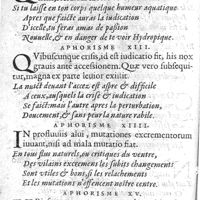 Si tu laisse en ton corps quelque humeur aquatique
Apres que faicte aura la iudication
D'icelle, tu feras amas de passion
Nouuelle, & en danger de te voir Hydropique.
APHORISME XIII.
QVibuscunque crisis, id est iudicatio fit, his nox
grauis ante accessionem. Que vero subsequi-
tur, magna ex parte leuior existit.
La nuict deuant l'acces est aspre & difficile
A ceux, ausquels la crise & iudication
Se faict: mais l'autre apres la perturbation,
Doucement, & sans peur la nature rabile.
APHORISME XIIII.
IN profluuiis alui, mutationes excrementorum
iuuant, nisi ad mala mutatio fiat.
En tous flux naturels, ou critiques du ventre,
Des vilains excremens les subits changements
Sont vtiles & bons, si les relachements
Et les mutations n'offencent nostre centre.
APHORISME XV.